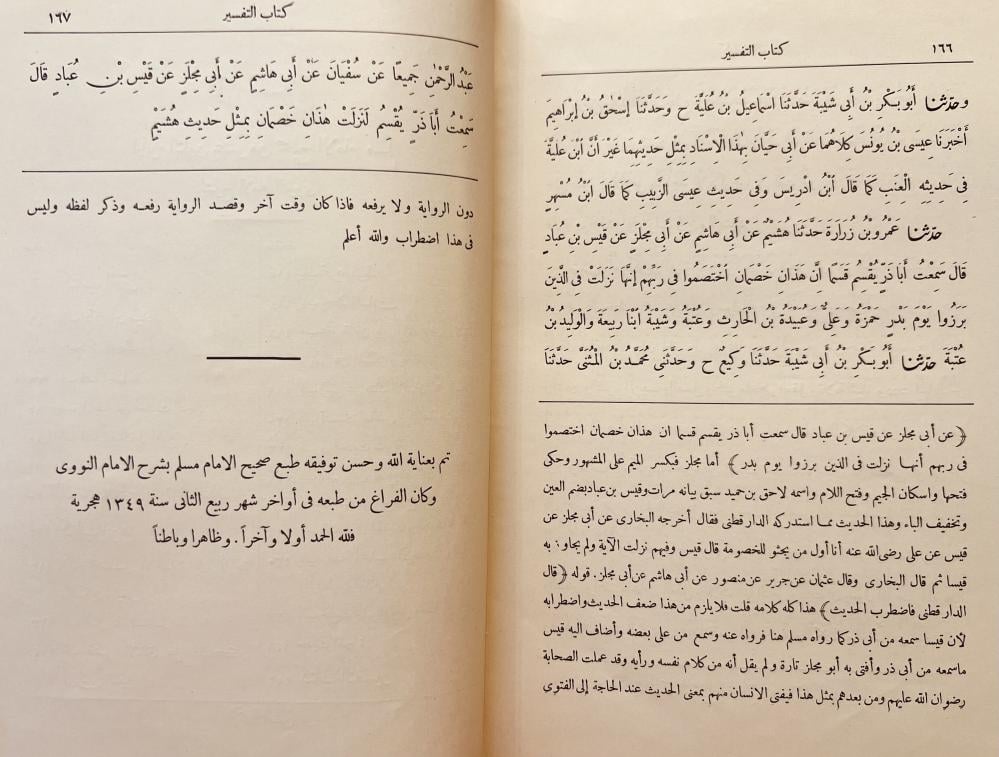 ١٦٦
كتاب التفسير
وحدثنا أَبُو بَكْرِ بْنُ أَبِي شَيْبَةَ حَدَّثَنَا اسْمَاعِيلُ بْنُ عُلَيَّةَ ح وَحَدَّثَنَا إِسْحٰقُ بْنُ إِبْرَاهِيمَ
أَخْبَرَنَا عِيسَى بْنُ يُونُسَ كِلَاهُمَا عَنْ أَبِي حَيَّانَ بِهٰذَا الْاِسْنَادِ بِمِثْلِ حَدِيثِهِمَا غَيْرَ أَنَّ ابْنَ عُلَيَّةَ
فِي حَدِيثِهِ الْعِنَبِ كَمَا قَالَ ابْنُ ادْرِيسَ وَفِي حَدِيثِ عِيسَى الزَّبِيبِ كَمَا قَالَ ابْنُ مُسْهِرٍ
حدثنا عَمْرُو بْنُ زُرَارَةَ حَدَّثَنَا هُشَيْمٌ عَنْ أَبِي هَاشِمٍ عَنْ أَبِي مِجْلَزٍ عَنْ قَيْسِ بْنِ عُبَادٍ
قَالَ سَمِعْتُ أَبَا ذَرٍّ يُقْسِمُ قَسَمًا اِنَّ هَذَانِ خَصْمَانِ اخْتَصَمُوا فِي رَبِّهِمْ إِنَّهَا نَزَلَتْ فِي الَّذِينَ
بَرَزُوا يَوْمَ بَدْرٍ حَمْزَةُ وَعَلِيٌّ وَعُبَيْدَةُ بْنُ الْحَارِثِ وَعُتْبَةُ وَشَيْبَةُ ابْنَا رَبِيعَةَ وَالْوَلِيدُ بْنُ
عُتْبَةَ حدثنا أَبُو بَكْرِ بْنُ أَبِي شَيْبَةَ حَدَّثَنَا وَكِيعٌ ح وَحَدَّثَنِي مُحَمَّدُ بْنُ الْمُثَنَّى حَدَّثَنَا
﴿عن أبى مجلز عن قيس بن عباد قال سمعت أبا ذر يقسم قسما ان هذان خصمان اختصموا
فى ربهم أنها نزلت فى الذين برزوا يوم بدر﴾ أما مجلز فبكسر الميم على المشهور وحكى
فتحها واسكان الجيم وفتح اللام واسمه لاحق بن حميد سبق بيانه مرات وقيس بن عباد بضم العين
وتخفيف الباء وهذا الحديث مما استدركه الدار قطنى فقال أخرجه البخارى عن أبى مجلز عن
قيس عن على رضى الله عنه أنا أول من يجثو للخصومة قال قيس وفيهم نزلت الآية ولم يجاوز به
قيسا ثم قال البخارى وقال عثمان عن جرير عن منصور عن أبى هاشم عن أبى مجلز. قوله ﴿قال
الدار قطنى فاضطرب الحديث﴾ هذا كله كلامه قلت فلا يلزم من هذا ضعف الحديث واضطرابه
لأن قيسا سمعه من أبى ذر كما رواه مسلم هنا فرواه عنه وسمع من على بعضه وأضاف اليه قيس
ماسمعه من أبى ذر وأفتى به أبو مجلز تارة ولم يقل أنه من كلام نفسه ورأيه وقد عملت الصحابة
رضوان الله عليهم ومن بعدهم بمثل هذا فيفتى الانسان منهم بمعنى الحديث عند الحاجة إلى الفتوى
كتاب التفسير
١٦٧
عَبْدُ الرَّحْمٰنِ جَمِيعًا عَنْ سُفْيَانَ عَنْ أَبِي هَاشِمٍ عَنْ أَبِي مِجْلَزٍ عَنْ قَيْسِ بْنِ عُبَادٍ قَالَ
سَمِعْتُ أَبَا ذَرٍّ يُقْسِمُ لَنَزَلَتْ هٰذَانِ خَصْمَانِ بِمِثْلِ حَدِيثِ هُشَيْمٍ
دون الرواية ولا يرفعه فاذا كان وقت آخر وقصد الرواية رفعه وذكر لفظه وليس
فى هذا اضطراب والله أعلم
تم بعناية الله وحسن توفيقه طبع صحيح الامام مسلم بشرح الامام النووى
وكان الفراغ من طبعه فى أواخر شهر ربيع الثانى سنة ١٣٤٩ هجرية
فلله الحمد أولا وآخراً . وظاهرا وباطناً